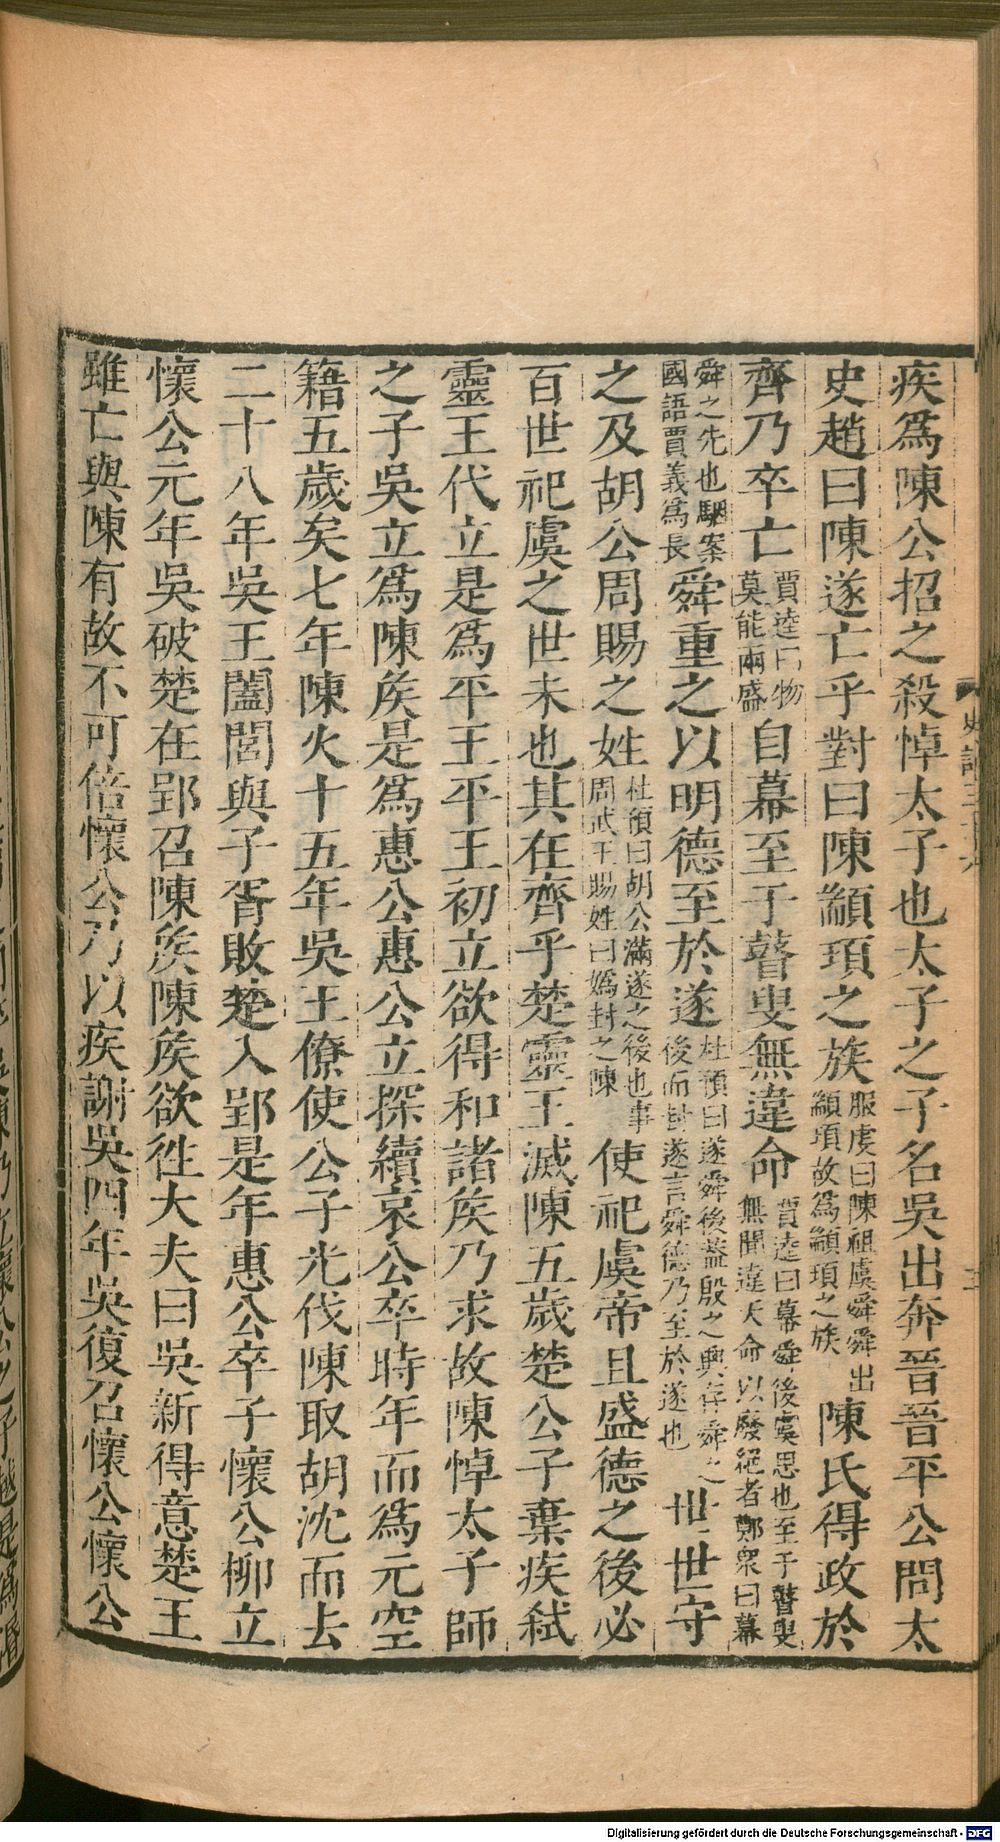 疾爲陳公招之殺悼太子也太子之子名吳出奔晉晉平公問太
史趙曰陳遂亡乎對曰陳顓頊之族服虔曰陳祖虞舜舜出顓頊故爲顓頊之族陳氏得政於
齊乃卒亡賈逵曰物莫能兩盛自幕至于瞽叟無違命賈逵曰幕舜後虞思也至于瞽叟無聞違天命以廢絕者鄭衆曰幕
舜之先也駰案國語賈義爲長舜重之以明德至於遂杜預曰遂舜後蓋殷之興存舜之後而封遂言舜德乃至於遂也世世守
之及胡公周賜之姓杜預曰胡公滿遂之後也事周武王賜姓曰嬀封之陳使祀虞帝且盛德之後必
百世祀虞之世未也其在齊乎楚靈王滅陳五歲楚公子棄疾弑
靈王代立是爲平王平王初立欲得和諸矦乃求故陳悼太子師
之子吳立爲陳矦是爲惠公惠公立探續哀公卒時年而爲元空
籍五歲矣七年陳火十五年吳王僚使公子光伐陳取胡沈而去
二十八年吳王闔閭與子胥敗楚入郢是年惠公卒子懷公柳立
懷公元年吳破楚在郢召陳矦陳矦欲徃大夫曰吳新得意楚王
雖亡與陳有故不可倍懷公乃以疾謝吳四年吳復召懷公懷公
史記三十六
Digitalisierung gefördert durch die Deutsche Forschungsgemeinschaft - DFG